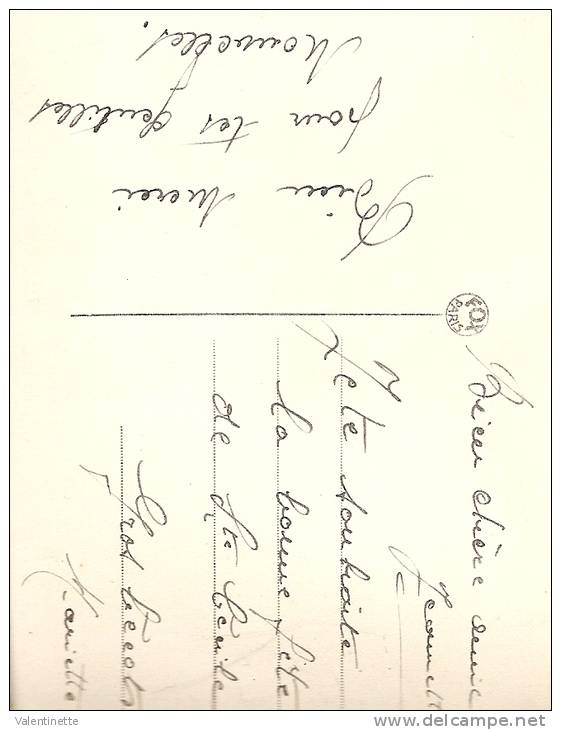 Bien Merci
pour tes gentilles
Nouvelles.
PARIS
Bien chère amie
Jeannette
Je te souhaite
la bonne fête
de Ste Cécile
Gros bécots
Mariette
Valentinette
delcampe.net